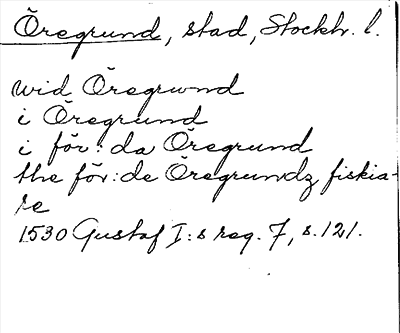 Öregrund, stad, Stockh. l.
wid Öregrwnd
i Öregrund
i för: da Öregrund
the för: de Öregrundz fiskia-
re
1530 Gustaf I:s reg. 7, s. 121.